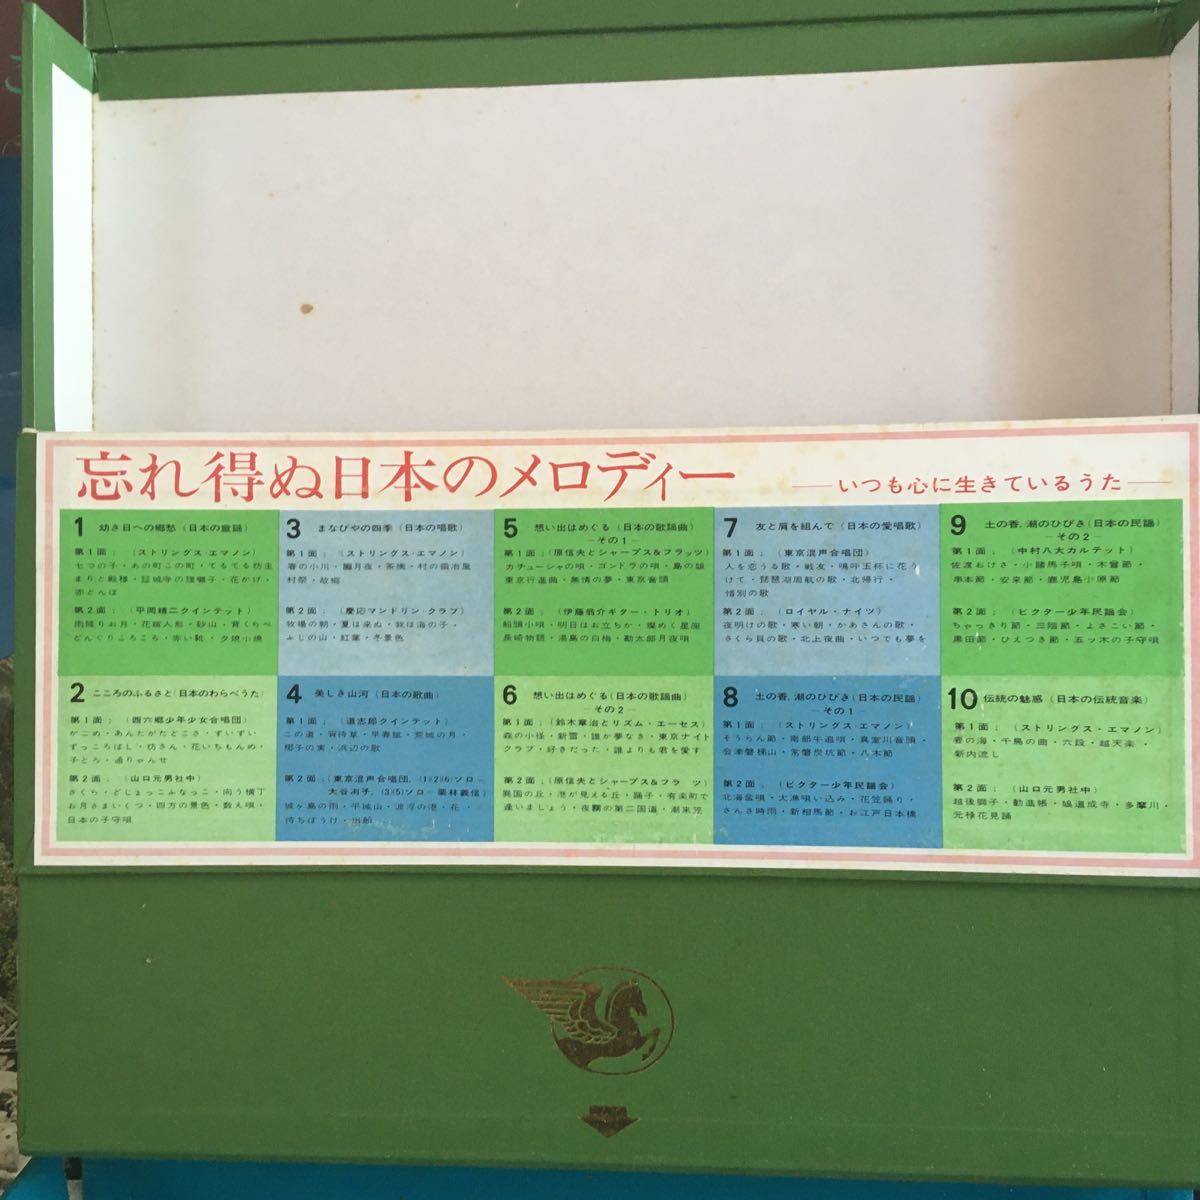 忘れ得ぬ日本のメロディー
―いつも心に生きているうた―
1 幼き日への郷愁(日本の童謡)
第1面:(ストリングス・エマノン)
七つの子・あの町この町・てるてる坊主
まりと殿様・証城寺の狸囃子・花かげ・
赤とんぼ
第2面:(平岡精二クインテット)
雨降りお月・花嫁人形・砂山・背くらべ
どんぐりころころ・赤い靴・夕焼小焼
2 こころのふるさと(日本のわらべうた)
第1面:(西六郷少年少女合唱団)
かごめ・あんたがたどこさ・ずいずい
ずっころばし・坊さん・花いちもんめ・
子とろ・通りゃんせ
第2面:(山口元男社中)
さくら・どじょっこふなっこ・向う横丁
お月さまいくつ・四方の景色・数え唄・
日本の子守唄
3 まなびやの四季(日本の唱歌)
第1面:(ストリングス・エマノン)
春の小川・朧月夜・茶摘・村の鍛冶屋
村祭・故郷
第2面:(慶応マンドリン・クラブ)
牧場の朝・夏は来ぬ・我は海の子・
ふじの山・紅葉・冬景色
4 美しき山河(日本の歌曲)
第1面:(道志郎クインテット)
この道・宵待草・早春賦・荒城の月・
椰子の実・浜辺の歌
第2面:(東京混声合唱団,(1)(2)(6)ソロ―
大谷冽子,(3)(5)ソロ―栗林義信)
城ヶ島の雨・平城山・波浮の港・花・
待ちぼうけ・出船
5 想い出はめぐる(日本の歌謡曲)
―その1―
第1面:(原信夫とシャープス&フラッツ)
カチューシャの唄・ゴンドラの唄・島の娘
東京行進曲・無情の夢・東京音頭
第2面:(伊藤翁介ギター・トリオ)
船頭小唄・明日はお立ちか・燦めく星座
長崎物語・湯島の白梅・勘太郎月夜唄
6 想い出はめぐる(日本の歌謡曲)
―その2―
第1面:(鈴木章治とリズム・エーセス)
森の小径・新雪・誰か夢なき・東京ナイト
クラブ・好きだった・誰よりも君を愛す
第2面:(原信夫とシャープス&フラッツ)
異国の丘・港が見える丘・踊子・有楽町で
逢いましょう・夜霧の第二国道・潮来笠
7 友と肩を組んで(日本の愛唱歌)
第1面:(東京混声合唱団)
人を恋うる歌・戦友・嗚呼玉杯に花う
けて・琵琶湖周航の歌・北帰行・
惜別の歌
第2面:(ロイヤル・ナイツ)
夜明けの歌・寒い朝・かあさんの歌・
さくら貝の歌・北上夜曲・いつでも夢を
8 土の香,潮のひびき(日本の民謡)
―その1―
第1面:(ストリングス・エマノン)
そうらん節・南部牛追唄・真室川音頭
会津磐梯山・常磐炭坑節・八木節
第2面:(ビクター少年民謡会)
北海盆唄・大漁唄い込み・花笠踊り・
さんさ時雨・新相馬節・お江戸日本橋
9 土の香,潮のひびき(日本の民謡)
―その2―
第1面:(中村八大カルテット)
佐渡おけさ・小諸馬子唄・木曽節・
串本節・安来節・鹿児島小原節
第2面:(ビクター少年民謡会)
ちゃっきり節・三階節・よさこい節・
黒田節・ひえつき節・五ッ木の子守唄
10 伝統の魅惑(日本の伝統音楽)
第1面:(ストリングス・エマノン)
春の海・千鳥の曲・六段・越天楽・
新内流し
第2面:(山口元男社中)
越後獅子・勧進帳・娘道成寺・多摩川・
元禄花見踊